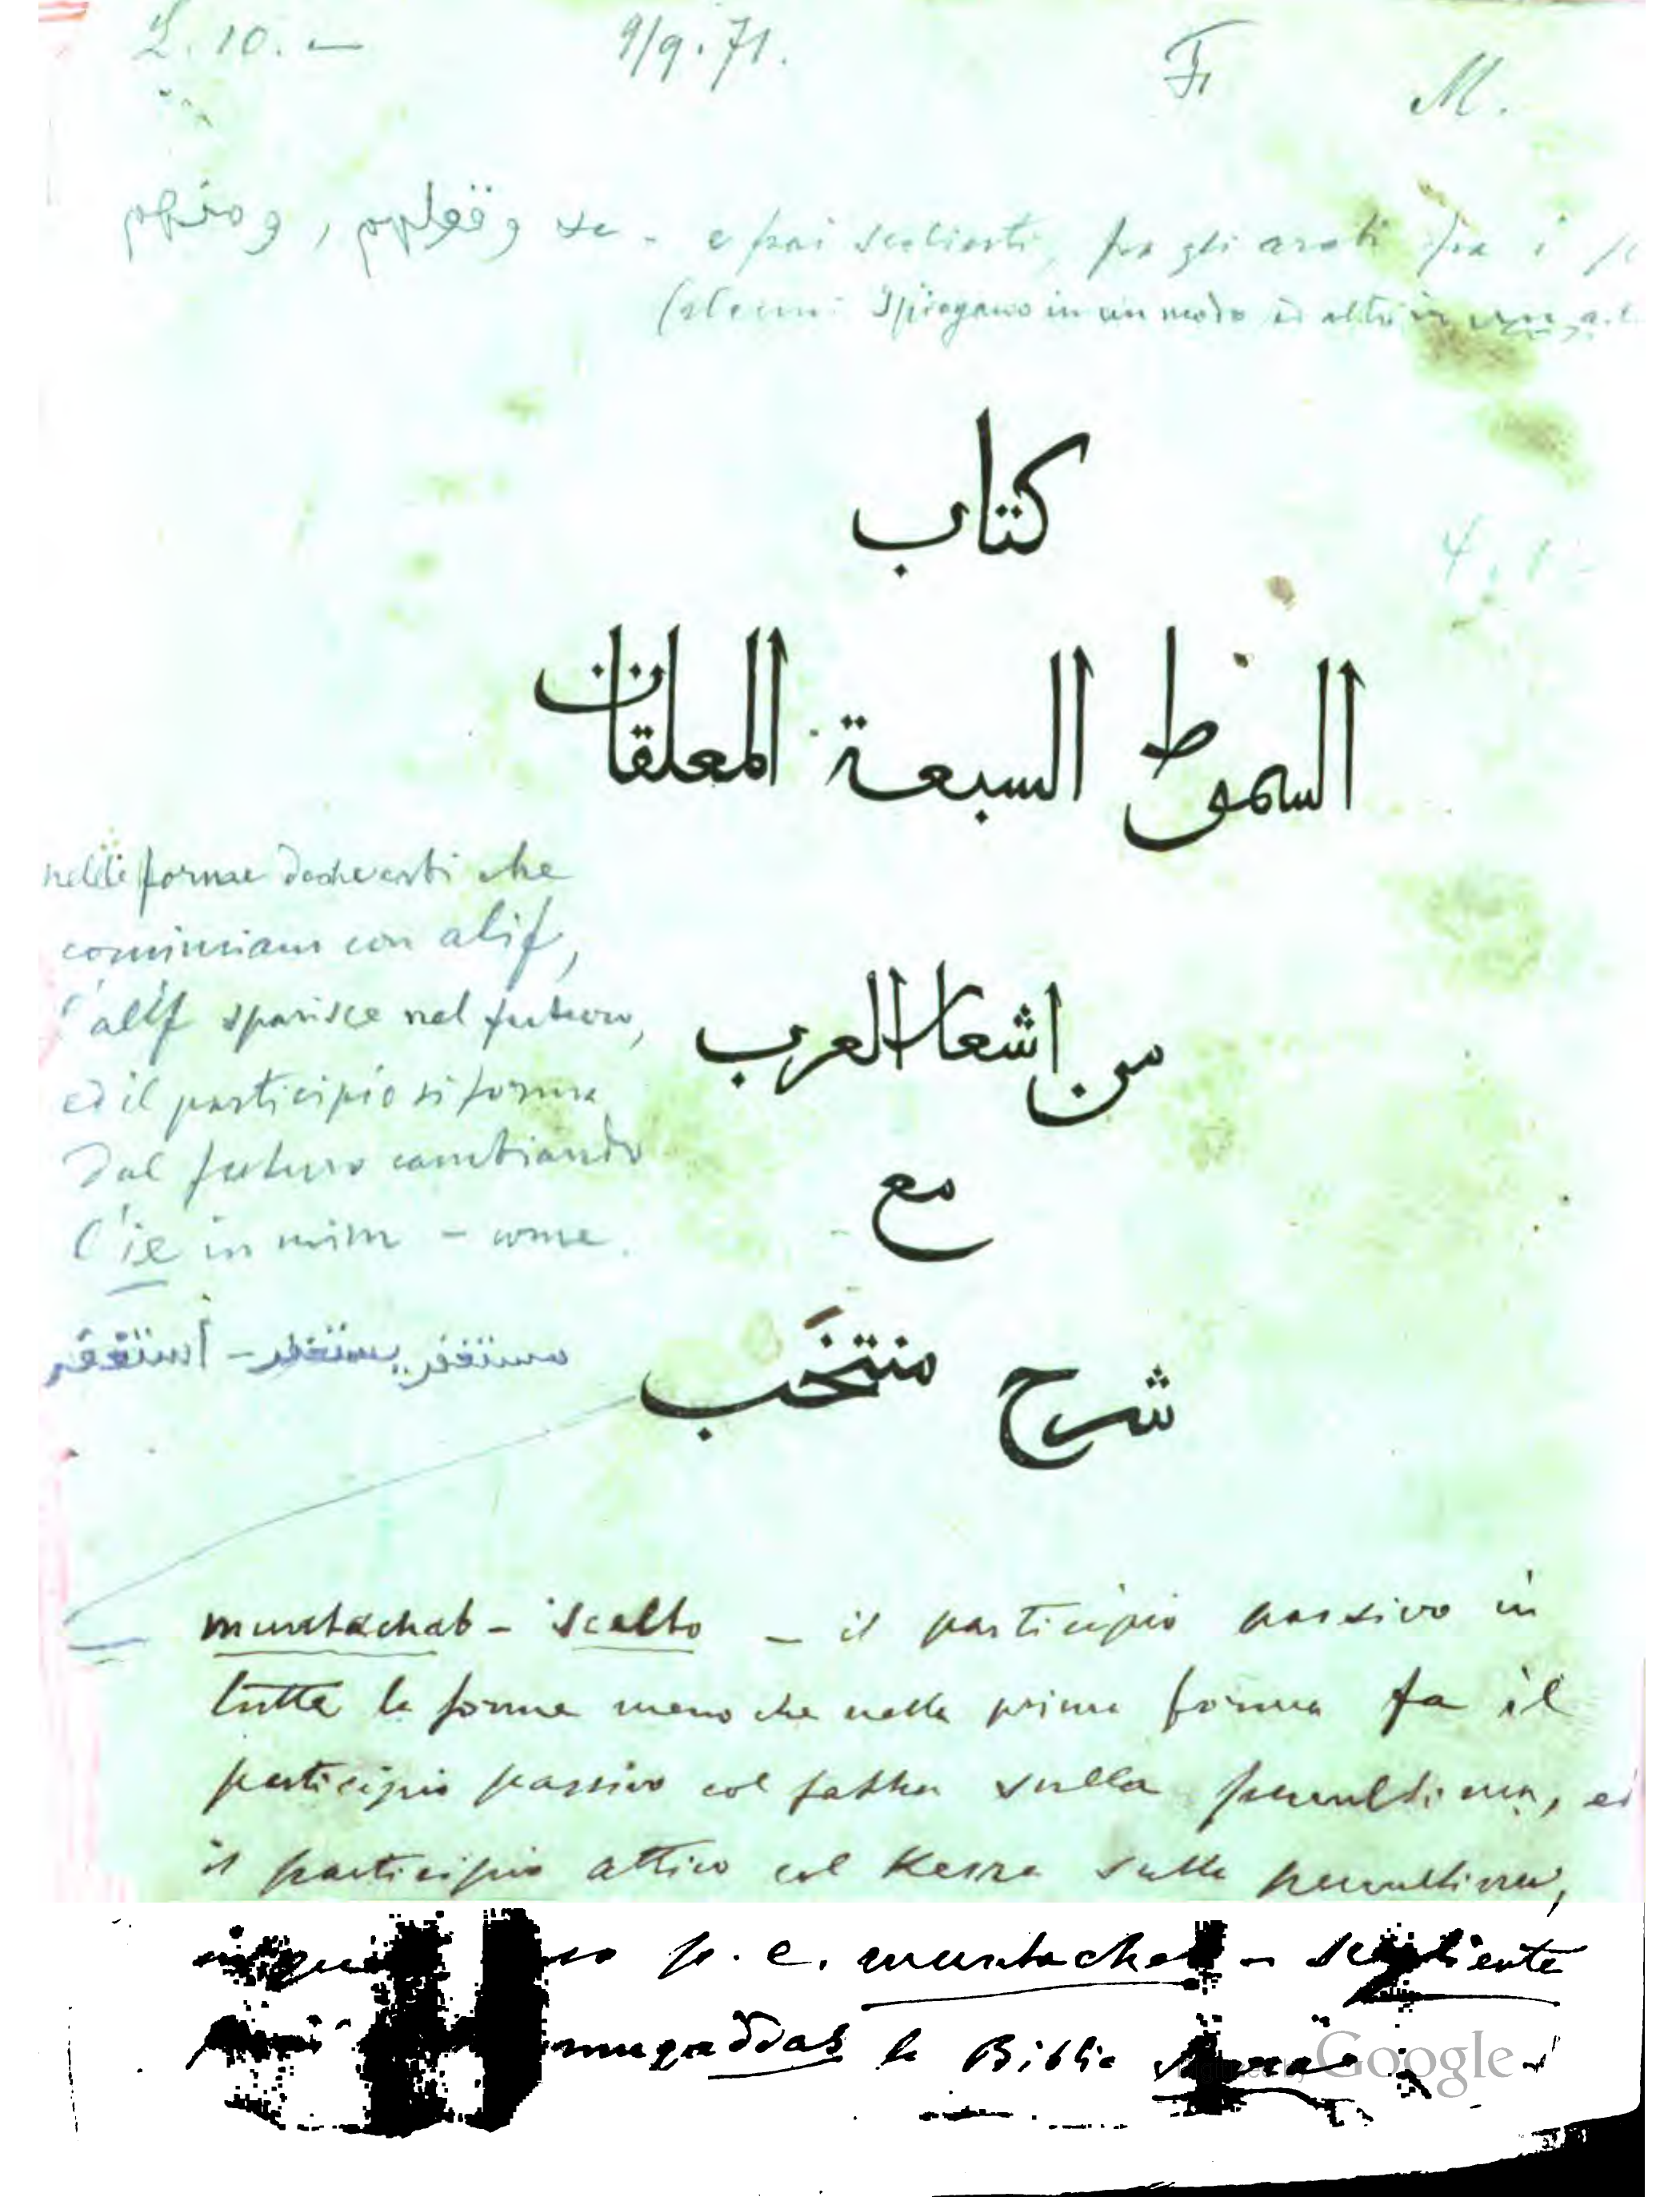 L. 10. —   9/9.71.   Fr   M.
ومنهم , وقولهم
(alcuni spiegano in un modo ed altri in un
كتاب
السموط السبعة المعلقات
nelle forme che
cominciano con alif,
l'alif sparisce nel futuro,
ed il participio si forma
dal futuro cambiando
l'ie in mim – come
مستغفر يستغفر – استغفر
من اشعار العرب
مع
شرح منتخَب
muntachab – scelto – il participio passivo in
tutte le forme meno che nella prima forma fa il
participio passivo col fatha sulla penultima, ed
il participio attivo col Kesra sulla penultima,
p. e. muntacheb – scegliente
muqaddas la Biblia
Google